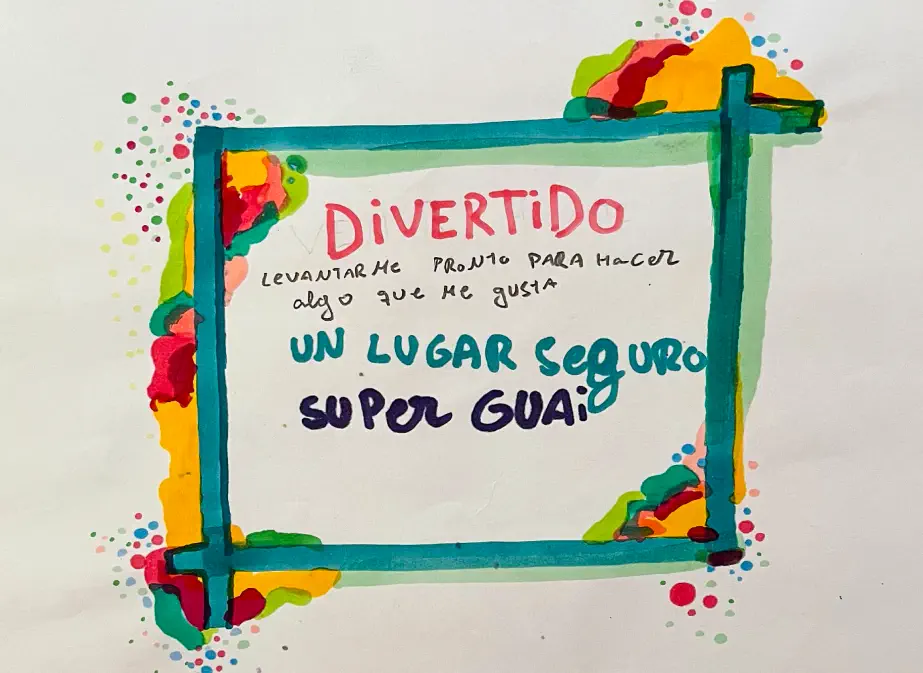 DiVERTiDO
LEVANTARME PRONTO PARA HACER
algo que me gusta
UN LUGAR SEgURO
SUPER GUAi